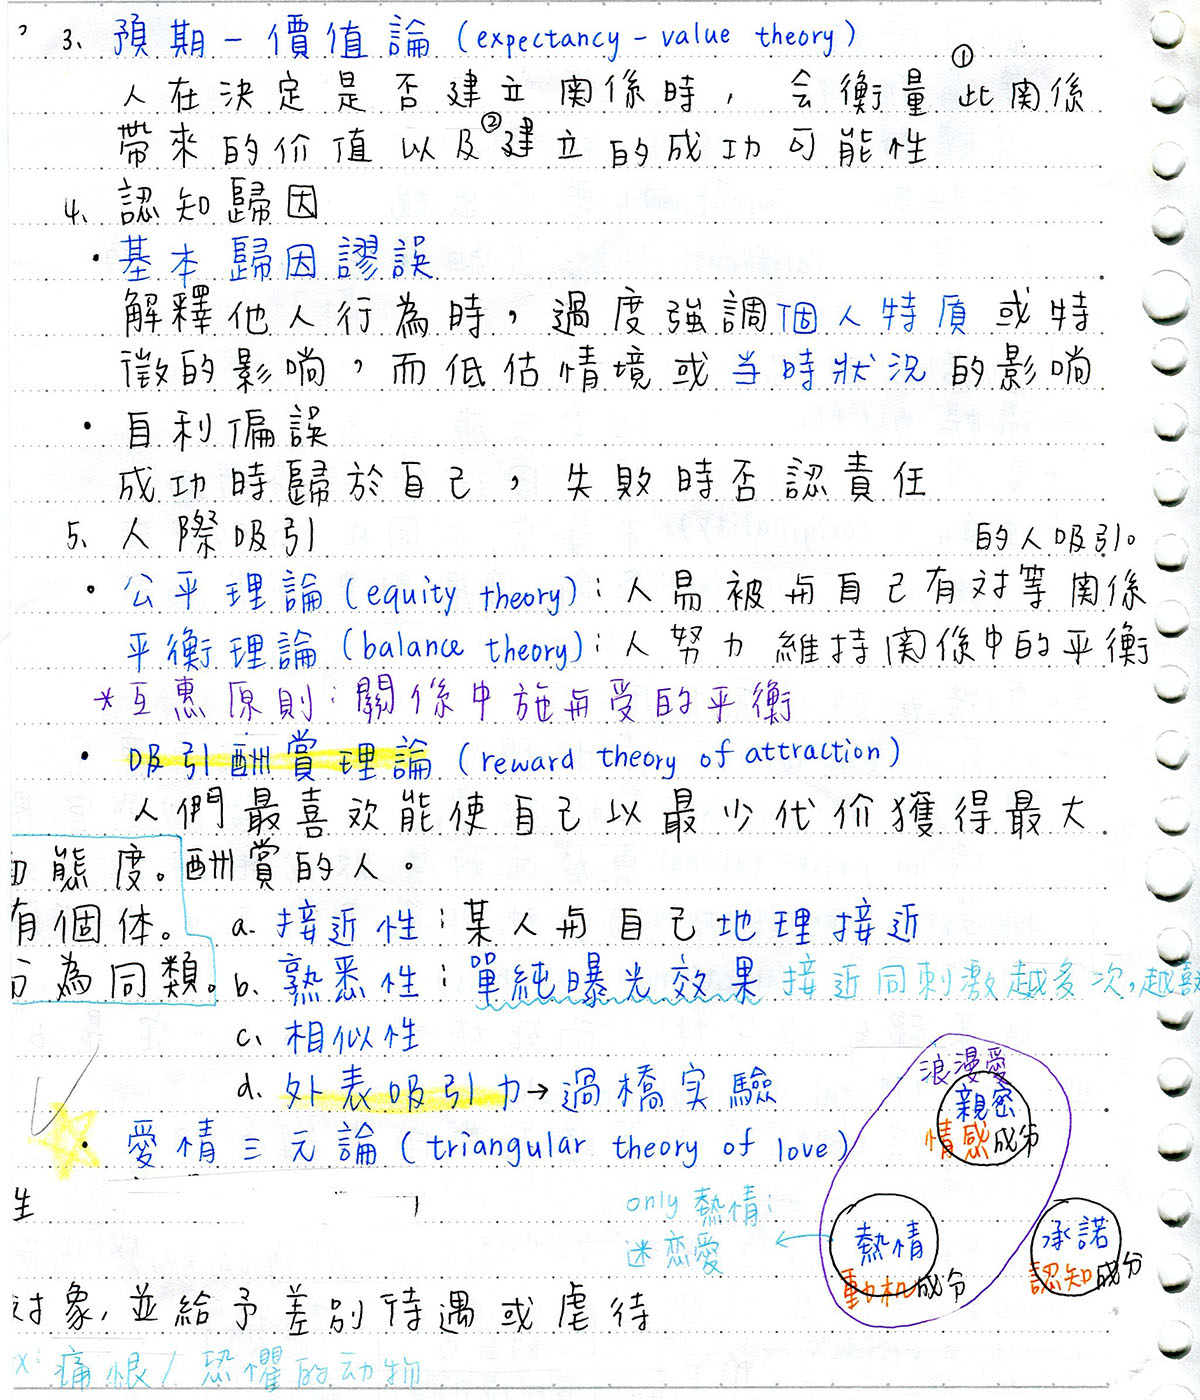 3、預期－價值論（expectancy－value theory）
人在決定是否建立関係時，会衡量①此関係
帶來的价值以及②建立的成功可能性
4、認知歸因
・基本歸因謬誤
解釋他人行為時，過度強調個人特質或特
徵的影响，而低估情境或当時狀況的影响
・自利偏誤
成功時歸於自己，失敗時否認責任
5、人際吸引
的人吸引。
・公平理論(equity theory)：人易被与自己有对等関係
平衡理論(balance theory)：人努力維持関係中的平衡
*互惠原則：關係中施与受的平衡
・吸引酬賞理論（reward theory of attraction）
人們最喜欢能使自己以最少代价獲得最大
態度。
酬賞的人。
有個体。
a. 接近性：某人与自己地理接近
為同類。
b. 熟悉性：單純曝光效果 接近同刺激越多次，越
c、相似性
d. 外表吸引力→過橋実驗
・愛情三元論(triangular theory of love)
浪漫愛
親密
情感成分
生
only 熱情：
迷恋愛
熱情
動机成分
承諾
認知成分
对象，並給予差別待遇或虐待
痛恨/恐懼的动物